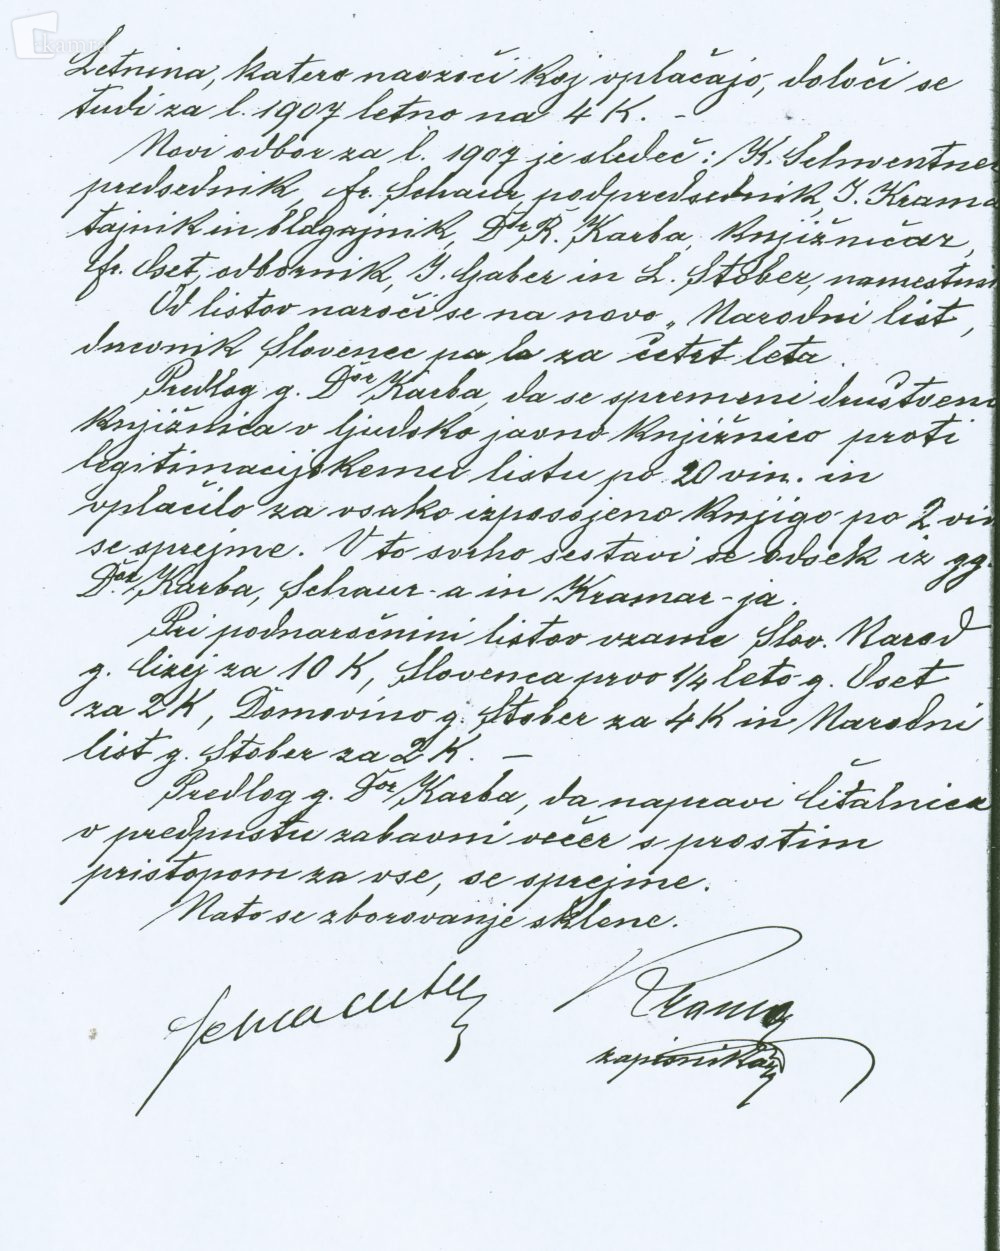 kamra
Letnina, katero navzoči koj vplačajo, določi se
tudi za l. 1907 letno na 4 K. –
Novi odbor za l. 1907 je sledeč: K. Schwentner
predsednik, fr. Schaur, podpredsednik, J. Krama
tajnik in blagajnik, Dr R. Karba, knjižničar,
fr. Oset, odbornik, J. Gaber in L. Stober, namestni
Od listov naroči se na novo „Narodni list,
dnevnik Slovenec pa la za četrt leta.
Predlog g. Dor Karba, da se spremeni društvena
knjižnica v ljudsko javno knjižnico proti
legitimacijskemu listu po 20 vin. in
vplačilo za vsako izposojeno knjigo po 2 vin
se sprejme. V to svrho sestavi se odsek iz gg.
Dor. Karba, Schaur-a in Kramar-ja.
Pri podnaročnini listov vzame Slov. Narod
g. Cizej za 10 K, Slovenca prvo 1/4 leto g. Oset
za 2 K, Domovino g. Stober za 4 K in Narodni
list g. Stober za 2 K. –
Predlog g. Dor Karba, da napravi Čitalnica
v predpustu zabavni večer s prostim
pristopom za vse, se sprejme.
Nato se zborovanje sklene.
zapisnikar